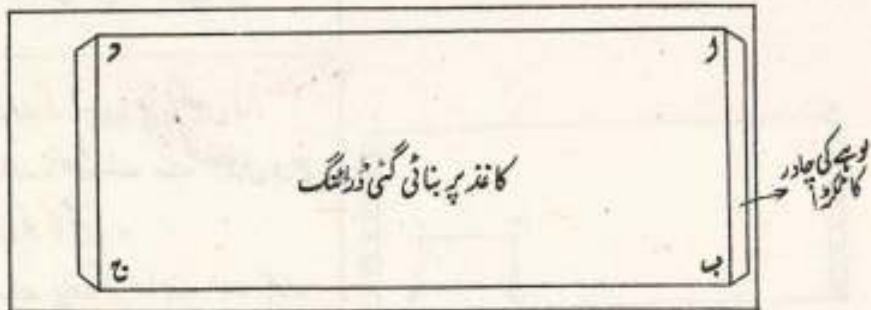 ا
د
کاغذ پر بنائی گئی ڈرائنگ
لوہے کی چادر
کا ٹکڑا
ب
ج